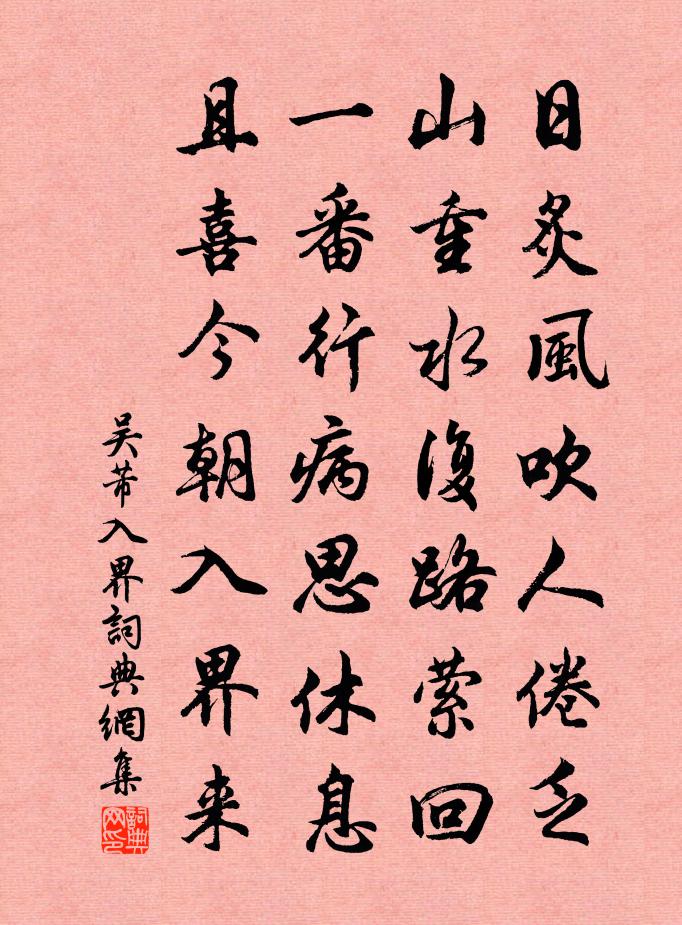 日炙風吹人倦乏
山重水復路縈回
一番行病思休息
且喜今朝入界来
吴芾入界詞典網集
詞典網印